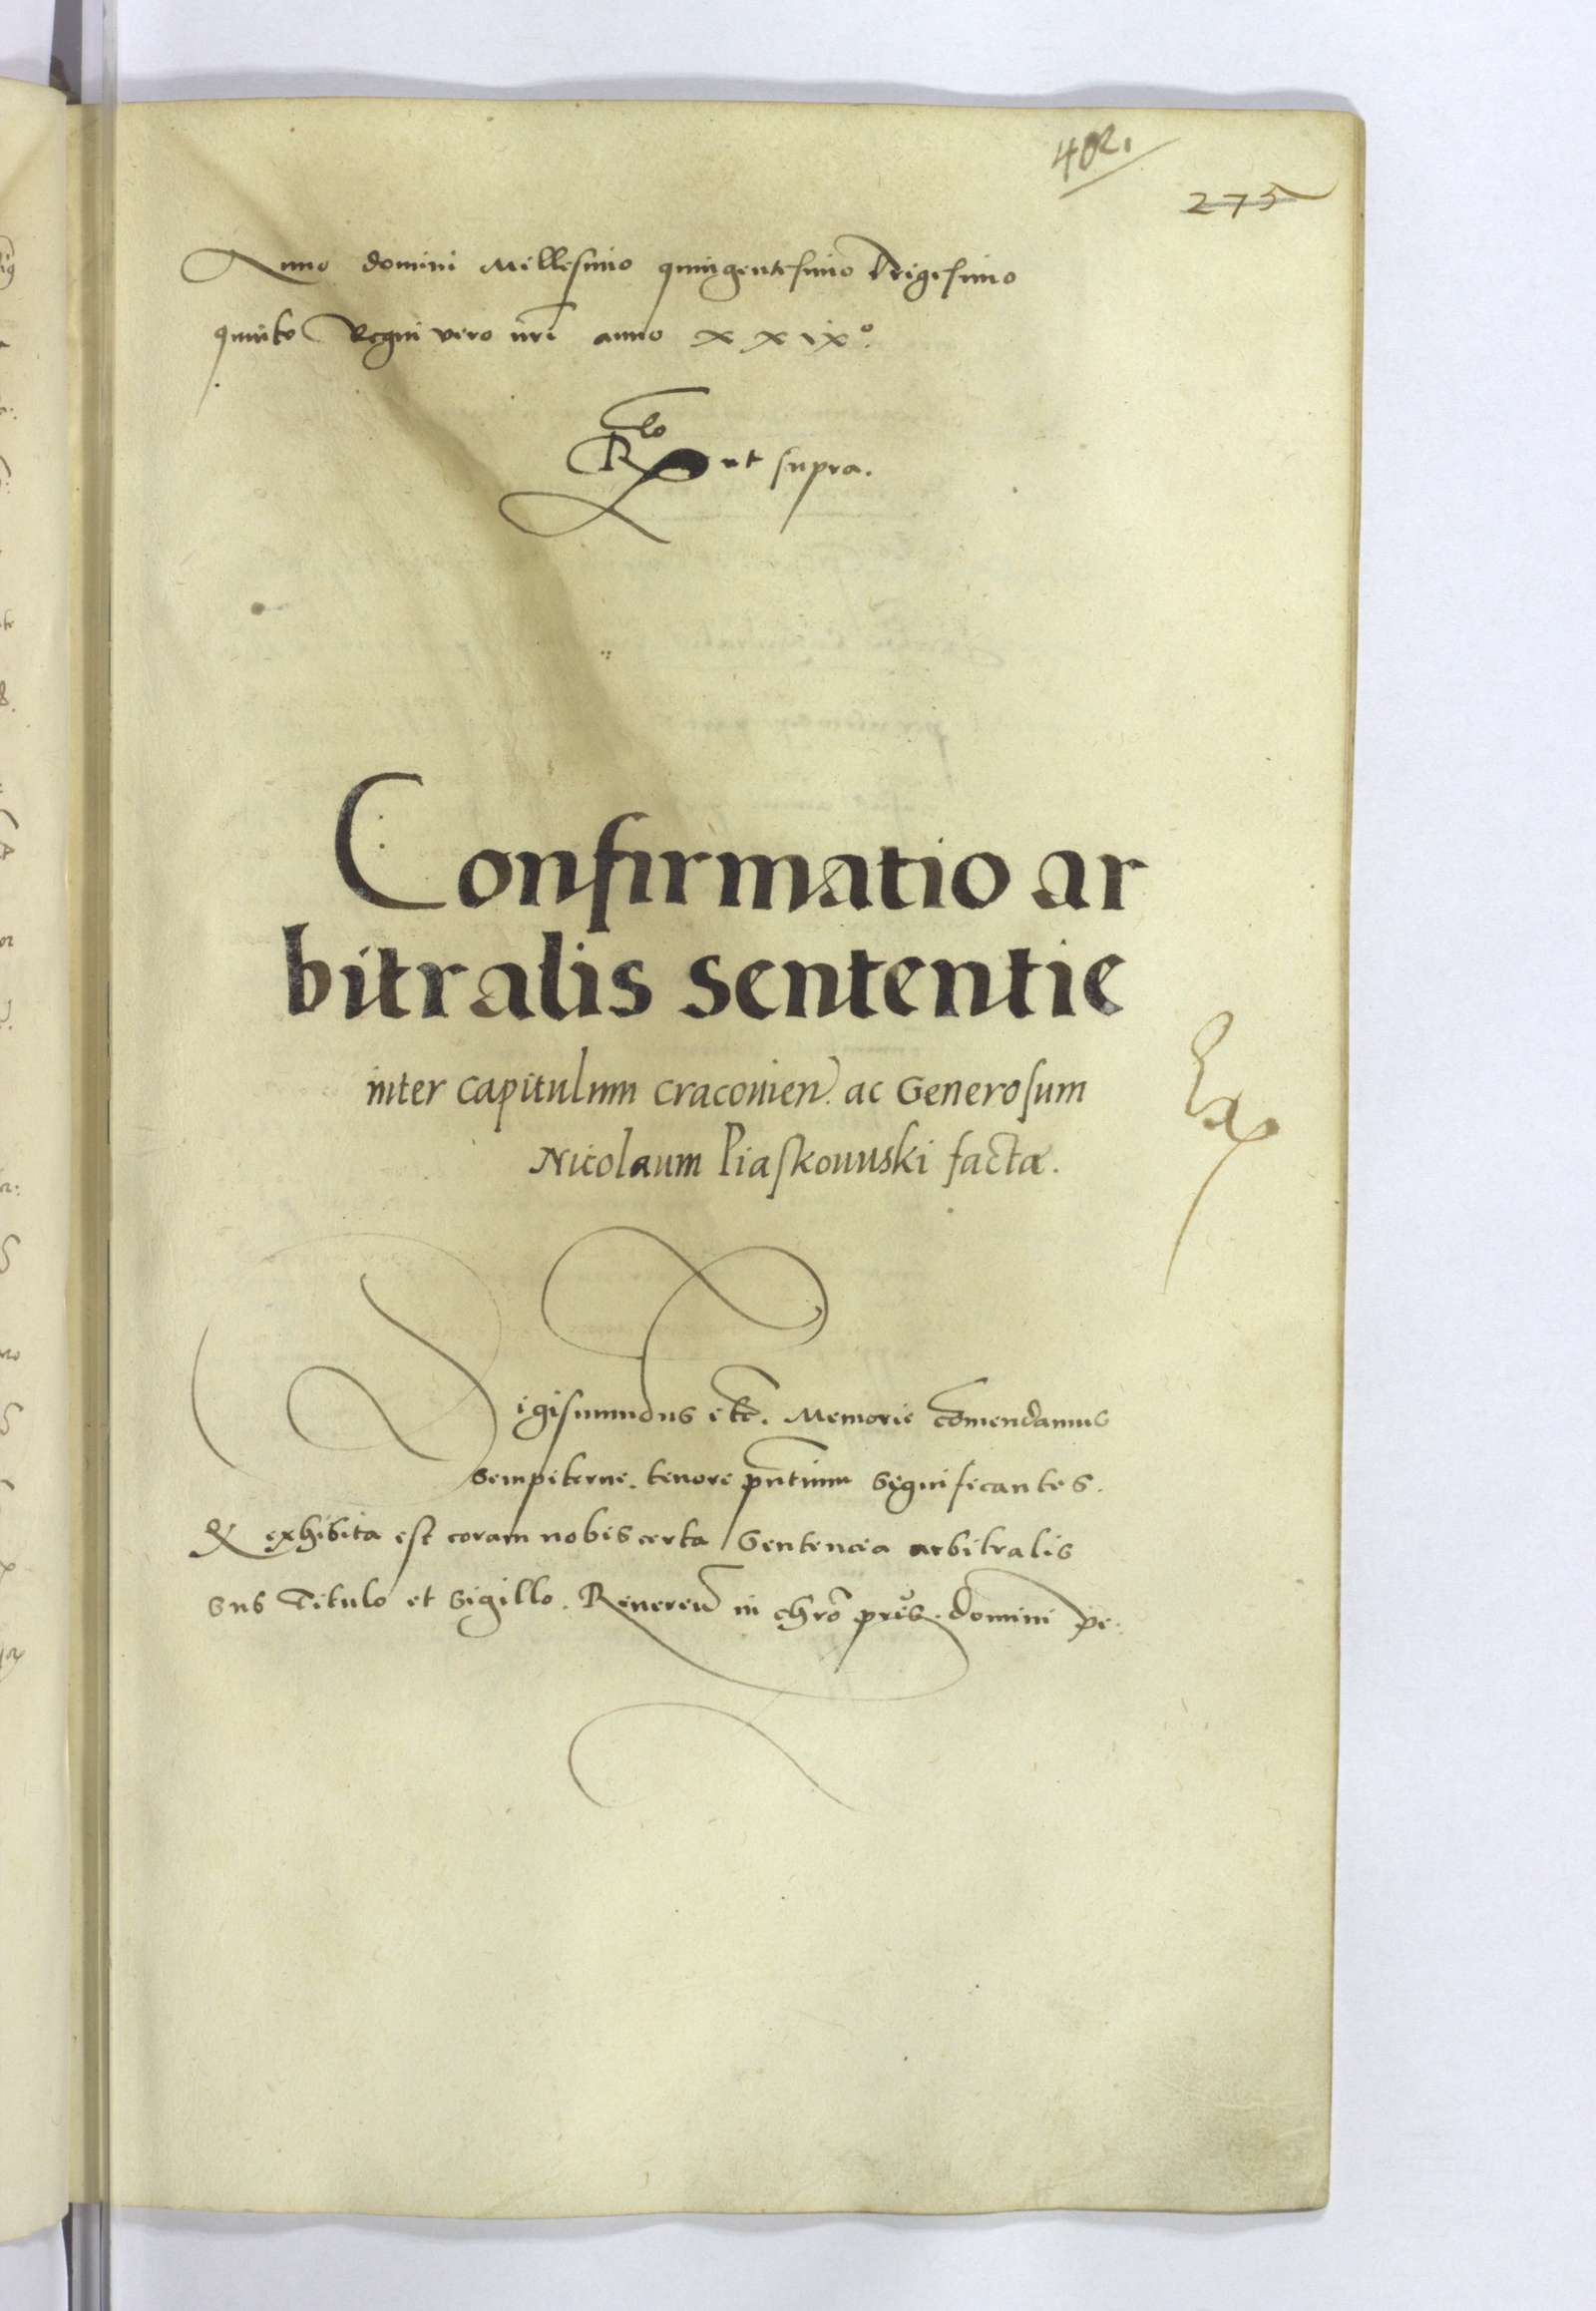 402.
275
Anno domini Millesimo quingentesimo Trigesimo
quinto Regni vero nrĩ anno xxixº.
Rlo ut supra.
Confirmatio ar
bitralis sententie
inter capitulum cracovien. ac Generosum
Nicolaum Piaskouuski facta.
Ex
Sigismundus etc. Memorie com̃endamus
sempiterne. tenore pñtium significantes.
Q exhibita est coram nobis certa sentencia arbitralis
sub Titulo et sigillo. Reveren in chrõ prĩs. domini pe